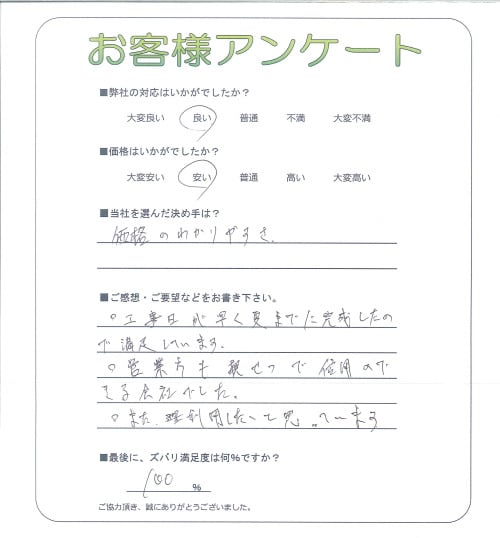 お客様アンケート
■弊社の対応はいかがでしたか?
大変良い 良い 普通 不満 大変不満
■価格はいかがでしたか?
大変安い 安い 普通 高い 大変高い
■当社を選んだ決め手は?
価格のわかりやすさ
■ご感想・ご要望などをお書き下さい。
○工事日が早く夏までに完成したの
で満足しています。
○営業方も親せつで信用ので
きる会社でした。
○また 利用したいと思っています
■最後に、ズバリ満足度は何%ですか?
100 %
ご協力頂き、誠にありがとうございました。